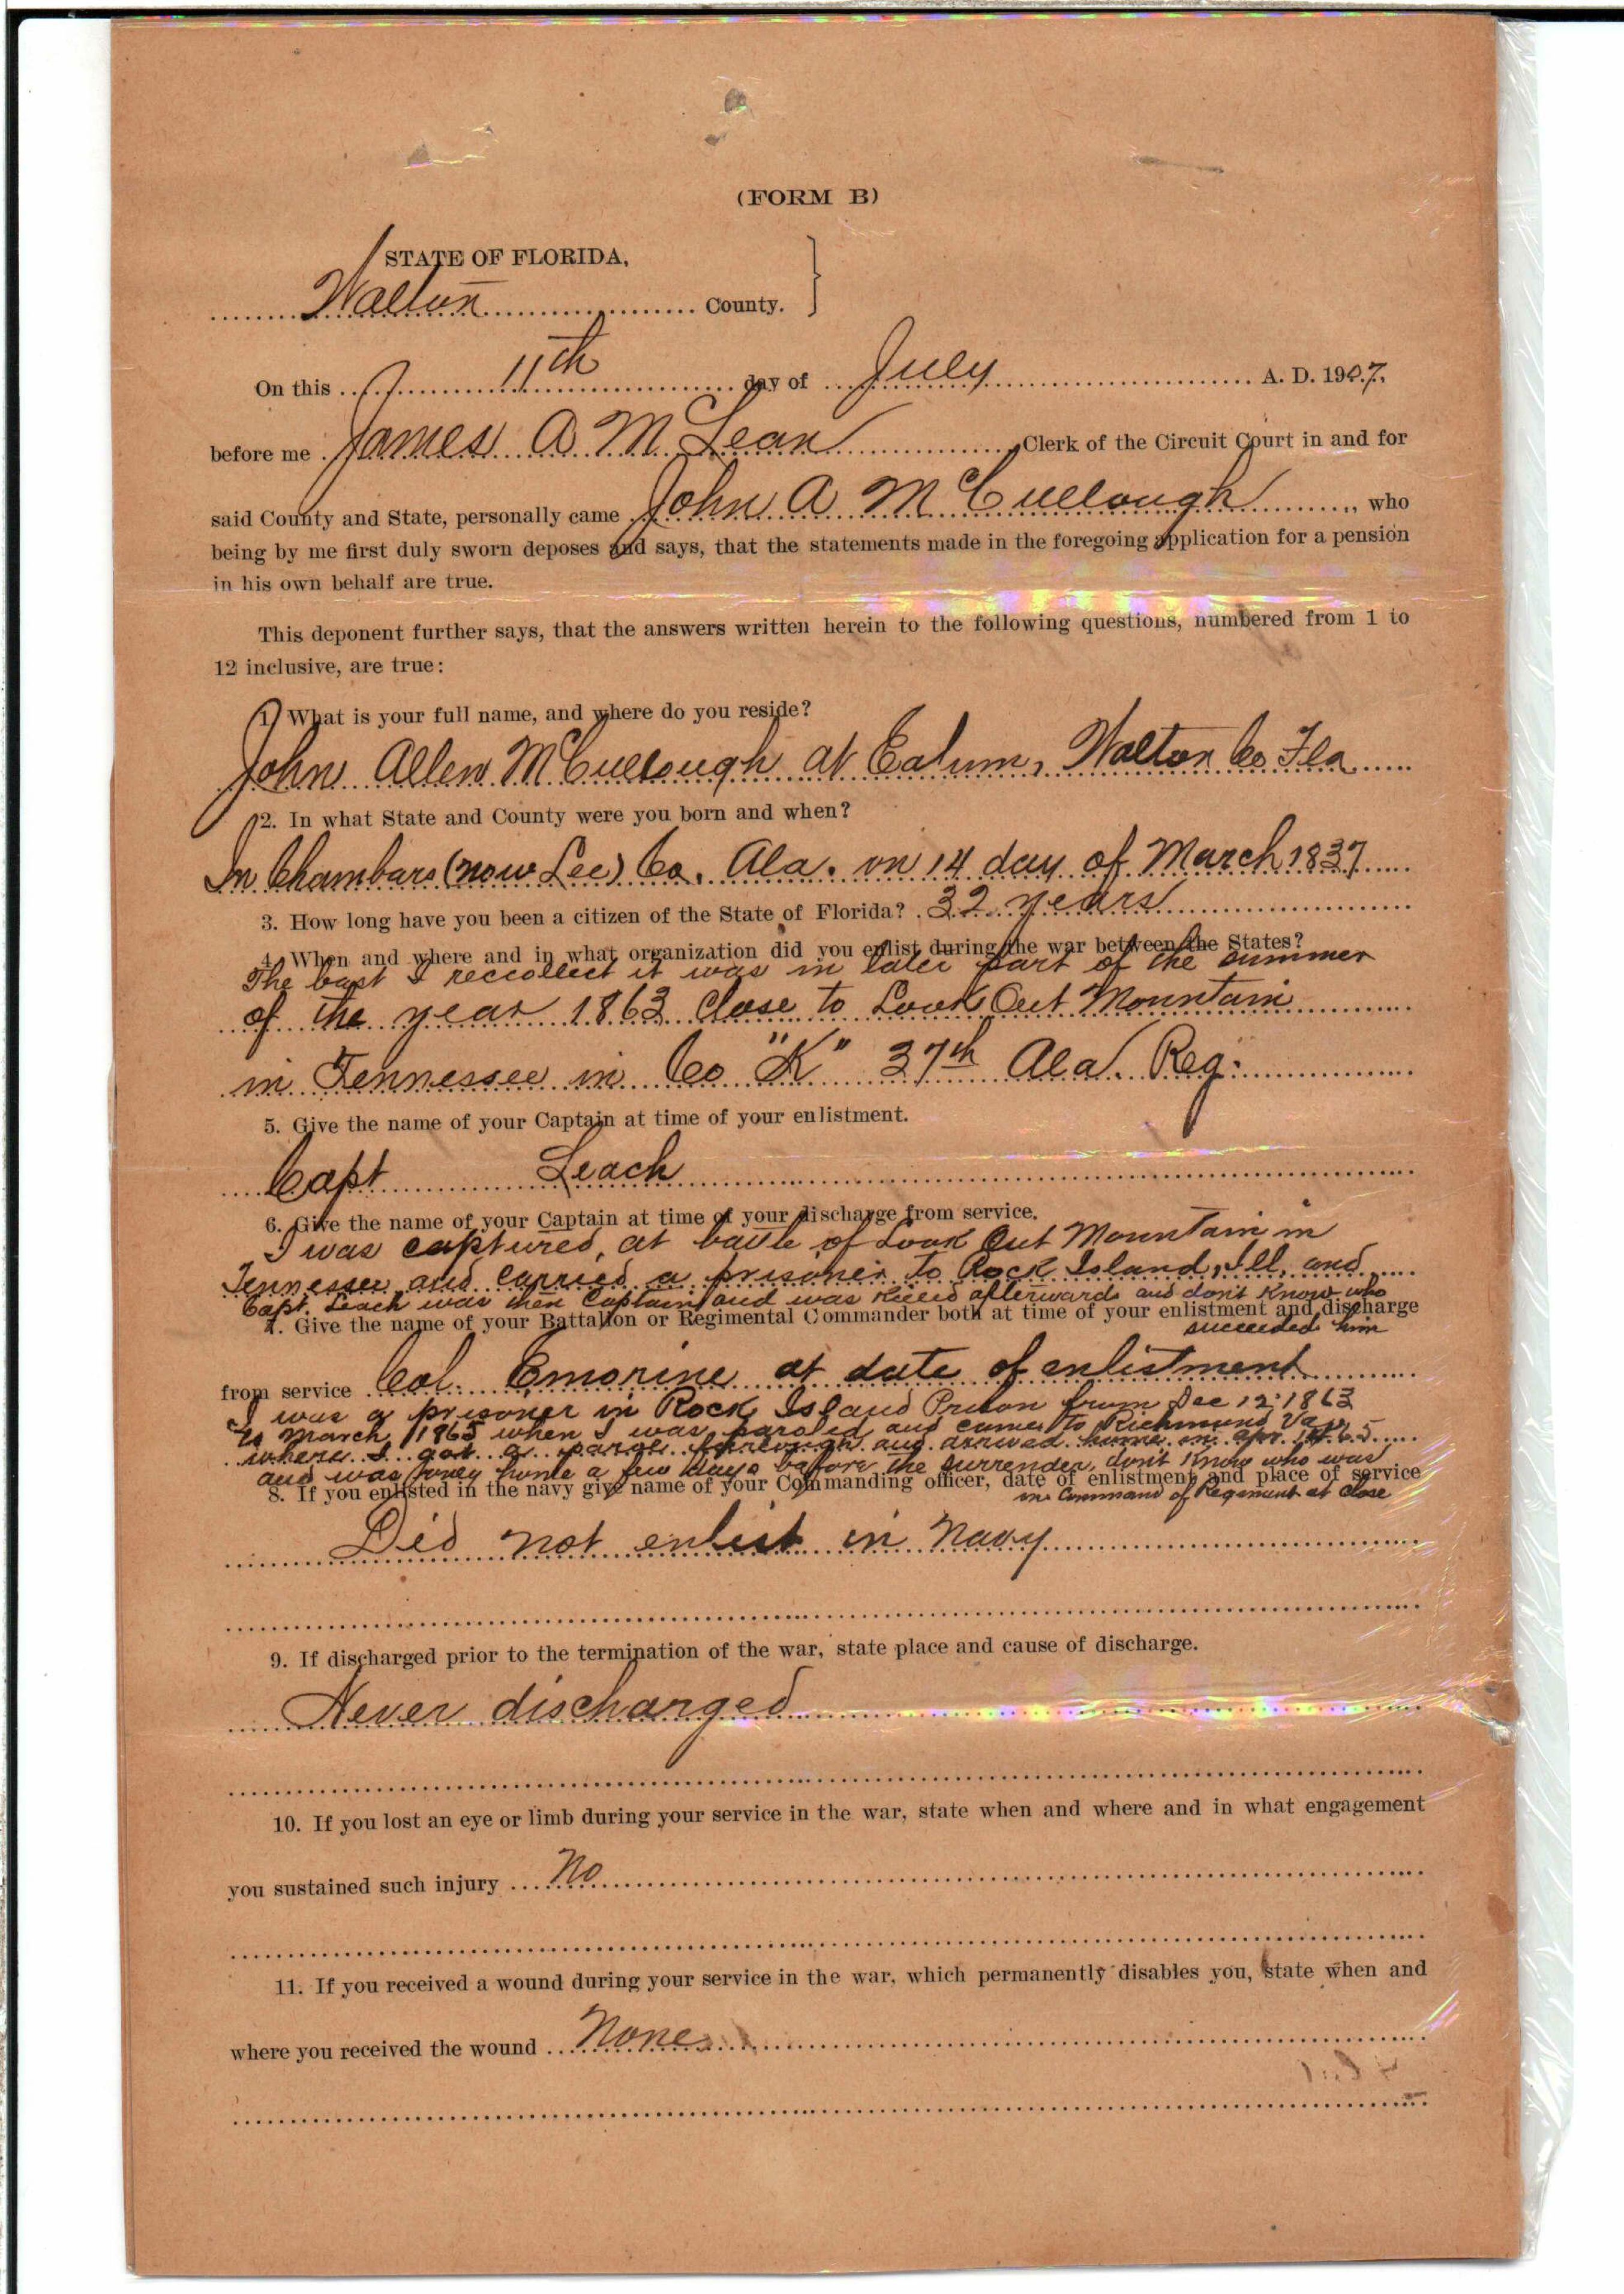 (FORM B)
STATE OF FLORIDA,
Walton County.
On this 11th day of July A. D. 1907.
before me James A McLean, Clerk of the Circuit Court in and for
said County and State, personally came John A McCullough, who
being by me first duly sworn deposes and says, that the statements made in the foregoing application for a pension
in his own behalf are true.
This deponent further says, that the answers written herein to the following questions, numbered from 1 to
12 inclusive, are true:
1. What is your full name, and where do you reside?
John Allen McCullough at Walton Co Fla
2. In what State and County were you born and when?
In Chambars (now Lee) Co. Ala. on 14 day of March 1837
3. How long have you been a citizen of the State of Florida? 32 years
4. When and where and in what organization did you enlist during the war between the States?
The best I reccollect it was in later part of the summer
of the year 1863 Close to Look Out Mountain
in Tennessee in Co "K" 37th Ala. Reg.
5. Give the name of your Captain at time of your enlistment.
Capt Leach
6. Give the name of your Captain at time of your discharge from service.
I was captured, at battle of Look Out Mountain in
Tennessee and carried a prisoner to Rock Island, Ill, and
Capt. Leach was then Captain and was killed afterwards and don't know who
7. Give the name of your Battalion or Regimental Commander both at time of your enlistment and discharge
succeeded him
from service Col. at date of enlistment
I was a prisoner in Rock Island Prison from Dec 12, 1863
to March 1865 when I was paroled and came to Richmond Va
where I got a parole and arrived home in Apr. 1865
and was home a few days before the surrender, don't know who was
8. If you enlisted in the navy give name of your Commanding officer, date of enlistment and place of service
in Command of Regiment at close
Did not enlist in Navy
9. If discharged prior to the termination of the war, state place and cause of discharge.
Never discharged
10. If you lost an eye or limb during your service in the war, state when and where and in what engagement
you sustained such injury No
11. If you received a wound during your service in the war, which permanently disables you, state when and
where you received the wound None